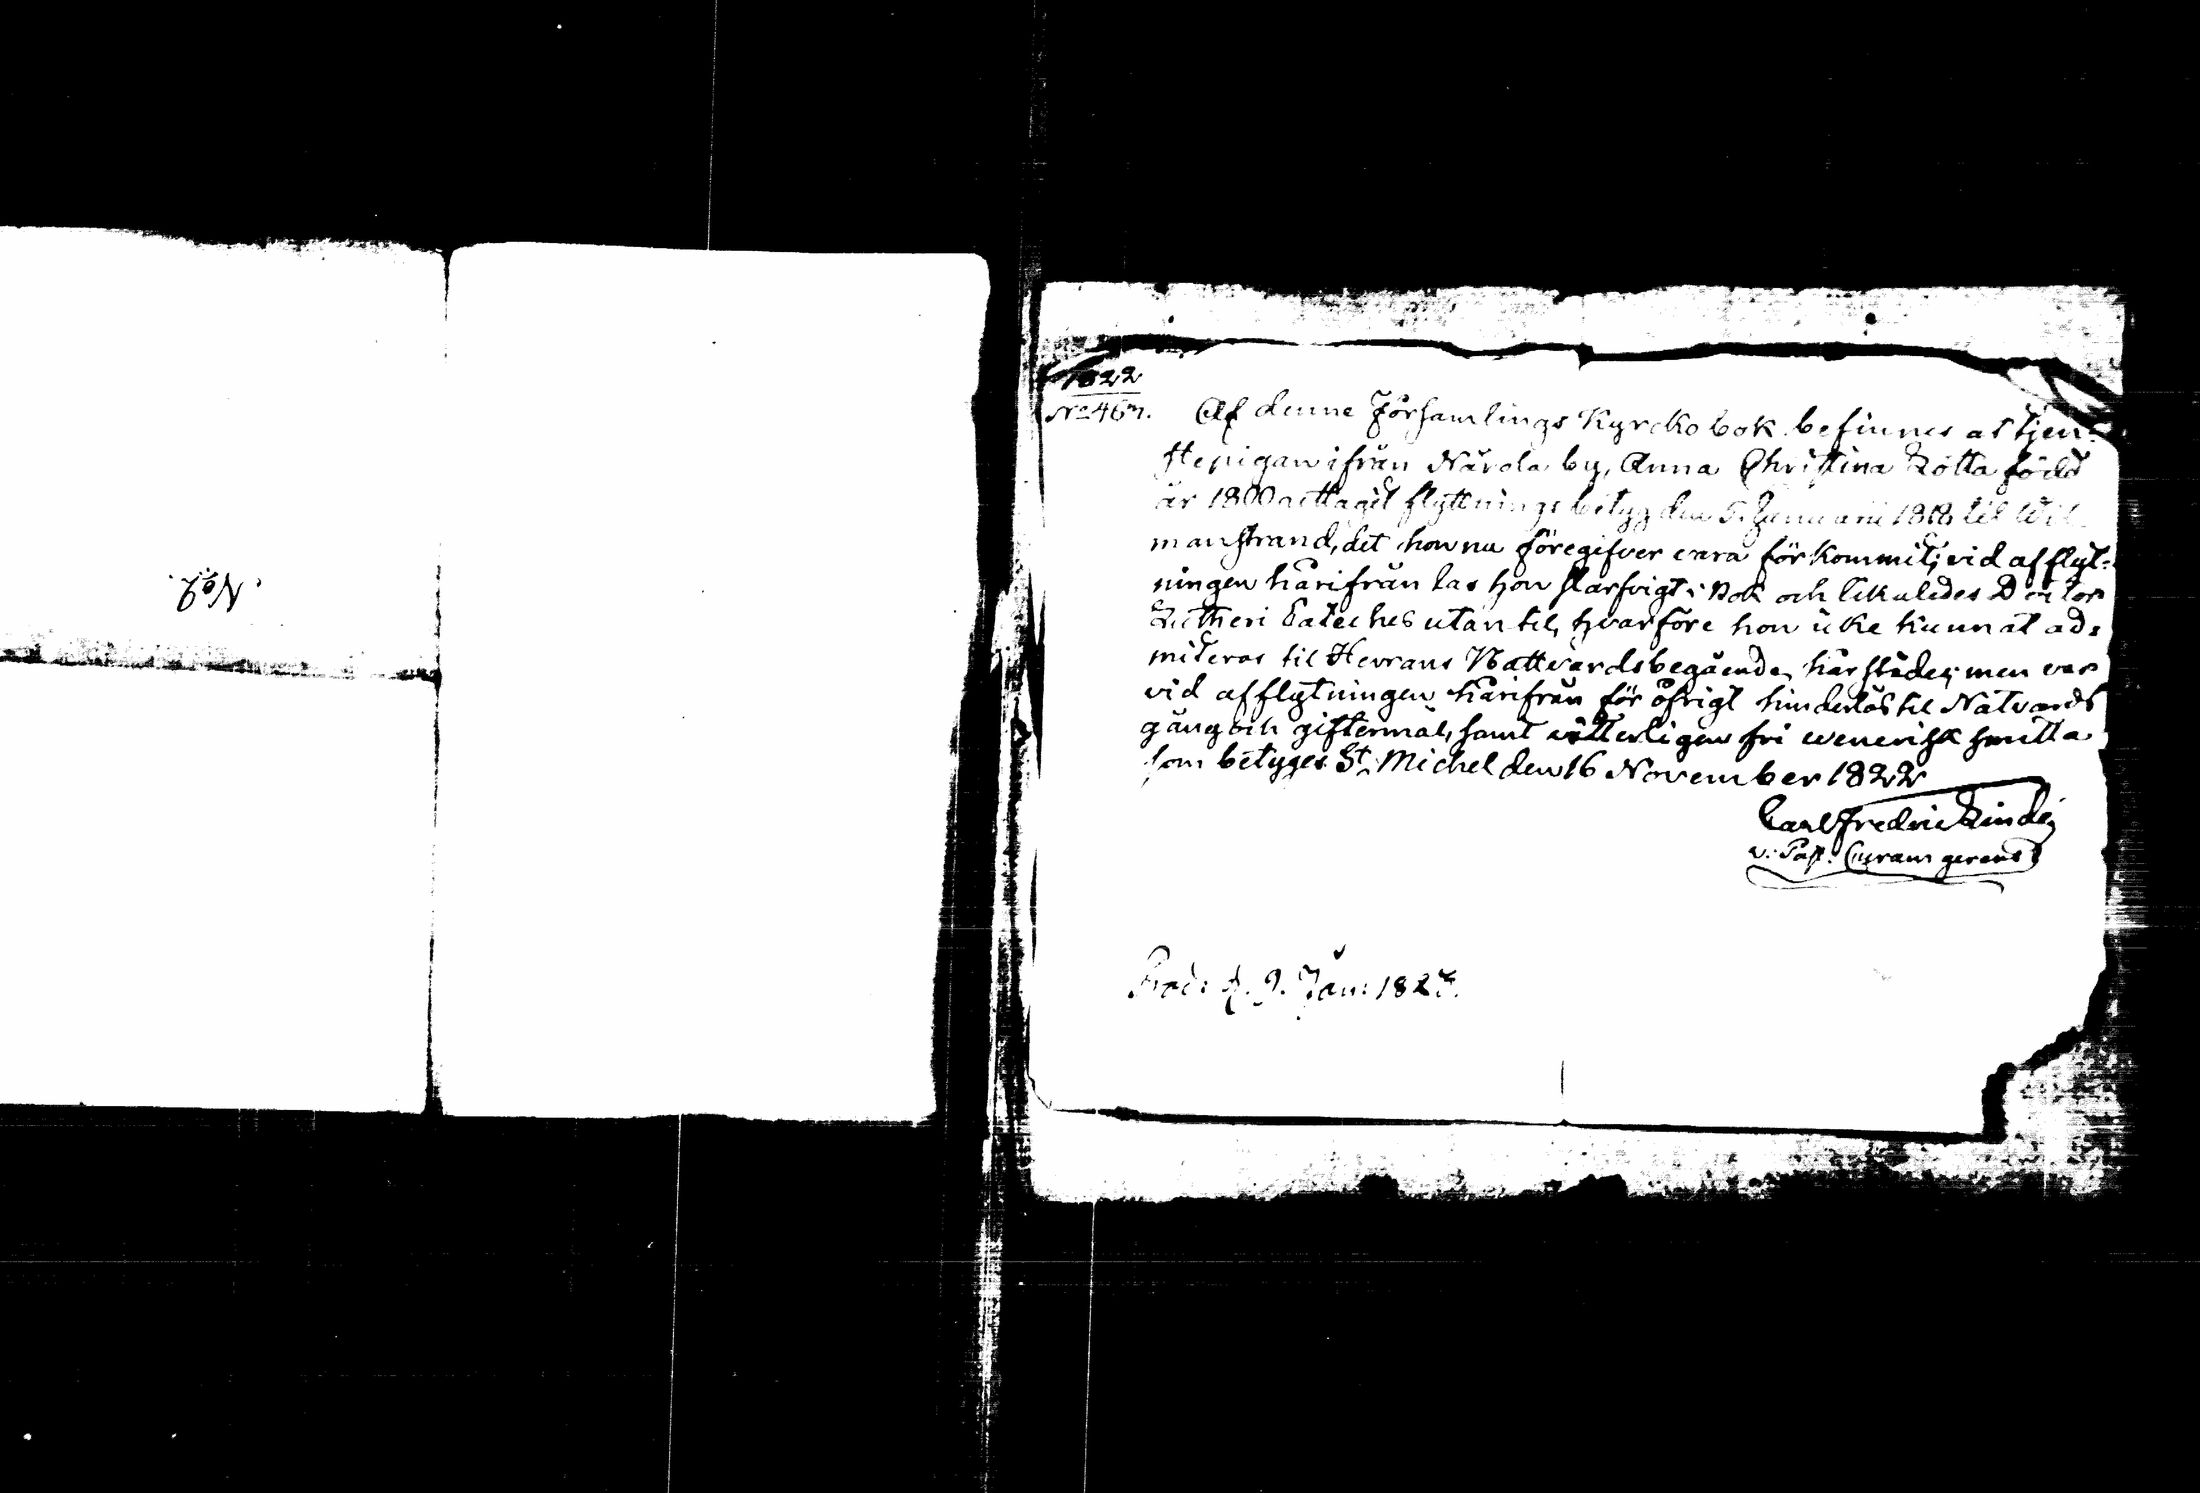 No 2.
1822
No 467.
Af denne Församlings Kyrckobok befinnes at tjen-
stepigan ifrån Närola by, Anna Christina Lotta född
år 1800 uttagit flyttnings betyg den 5. Januarii 1818 til Wil-
manstrand, det hon nu föregifver vara förkommit; vid afflyt-
ningen härifrån las hon slarfvigt i Bok och likaledes Doctor
Lutheri Cateches utan til, hvarföre hon icke kunnat ad-
miteras til Herrans Nattvardsbegående härstädes; men var
vid afflytningen härifrån för öfrigt hinderlös til Natvards
gång och giftermål, samt vitterligen fri venerisk smitta
som betyges St. Michel den 16 November 1822
Carl Fredric
v: Past: Curam gerens
d. 9. Jan: 1823.